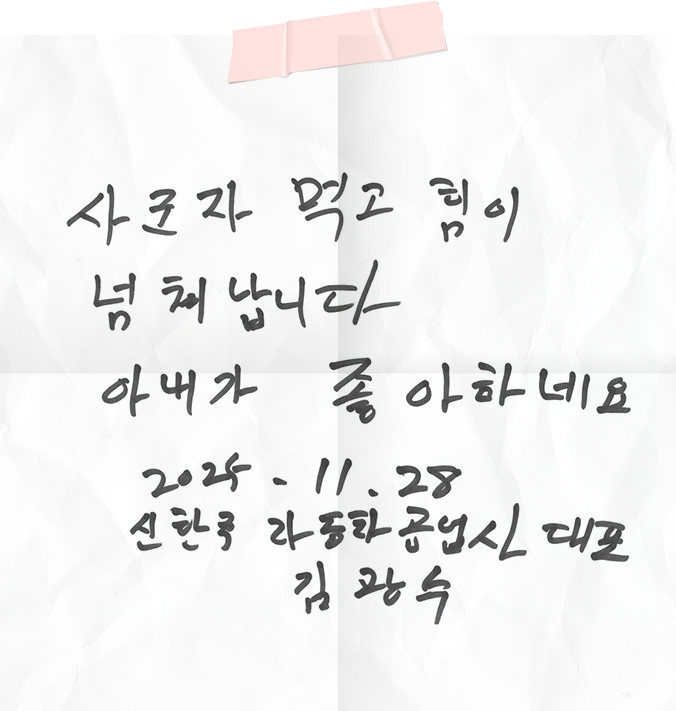 사군자 먹고 힘이
넘쳐납니다
아내가 좋아하네요
2025.11.28
신한국 자동화공업사 대표
김광수